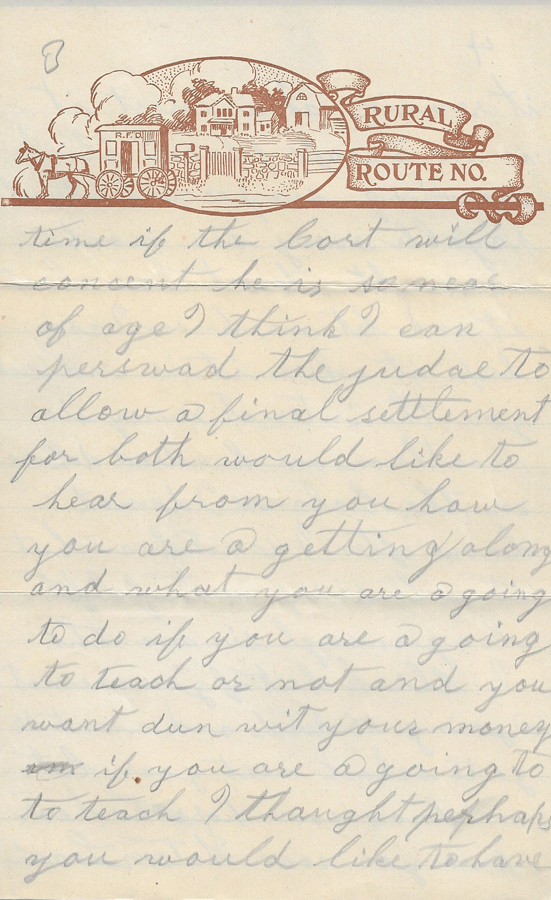 R.F.D.
RURAL
ROUTE NO.
time if the Cort will
concent he is so near
of age I think I can
perswad the judge to
allow a final settlement
for both would like to
hear from you how
you are a getting along
and what you are a going
to do if you are a going
to teach or not and you
want dun wit your money
if you are a going to
to teach I thaught perhaps
you would like to have